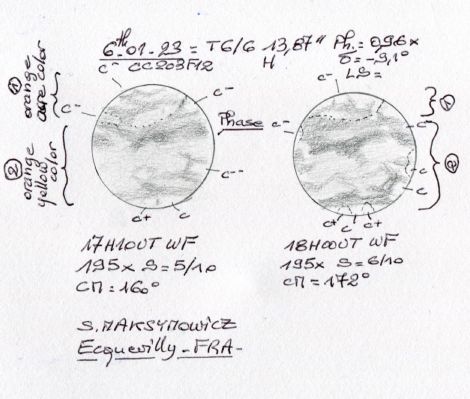 6th-01-23 = T6/6 13,87" Ph.= 0,96x
CC203F12 H δ= -9,1°
LS=
① orange color
② orange yellow color
c- c- c--
c+ c
Phase
c- c- c c
c+ c c+
① ②
17H10UT WF
195x S=5/10
CM=160°
18H00UT WF
195x S=6/10
CM=172°
S.MAKSYMOWICZ
Ecquevilly-FRA-